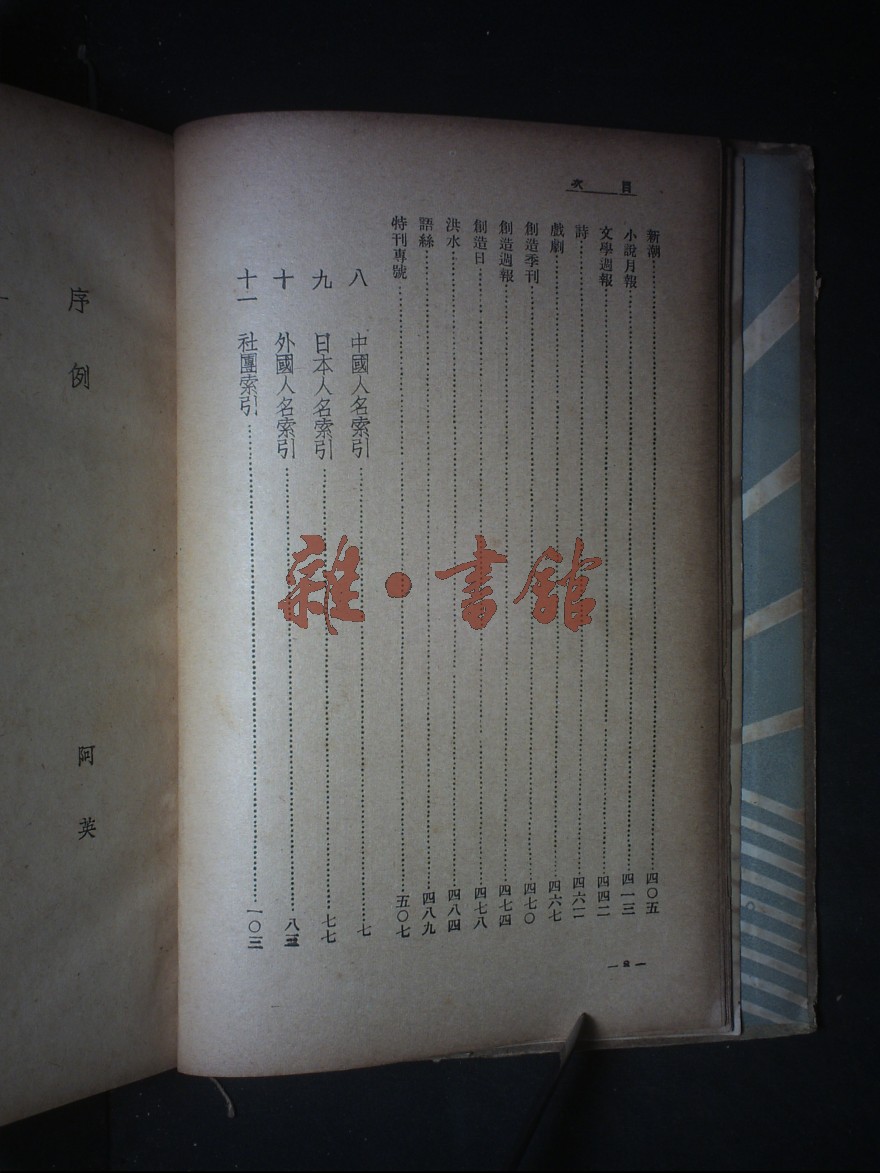 目次
新潮……四〇五
小說月報……四一三
文學週報……四四二
詩……四六二
戲劇……四六七
創造季刊……四七〇
創造週報……四七四
創造日……四七八
洪水……四八四
語絲……四八九
特刊專號……五〇七
八 中國人名索引……七
九 日本人名索引……七七
十 外國人名索引……八三
十一 社團索引……一〇三
序例
阿英
雜·書館